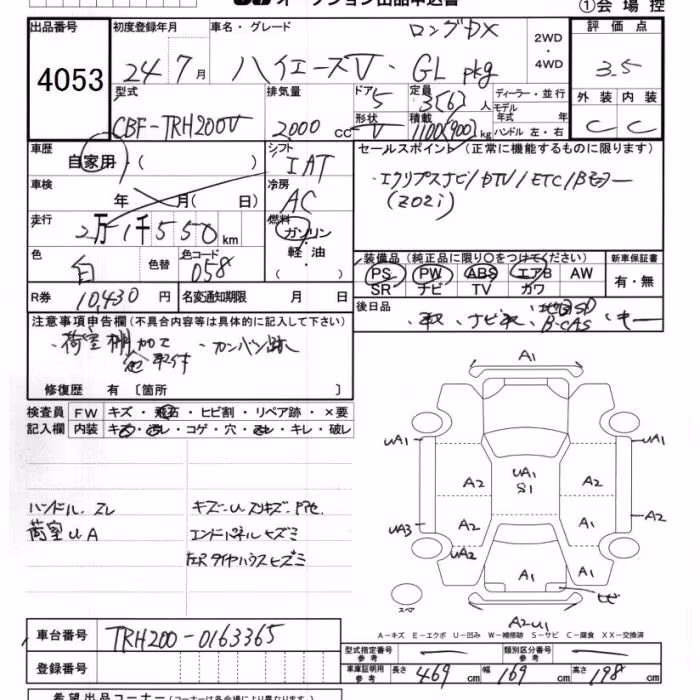 オークション出品申込書
①会場控
出品番号
4053
初度登録年月
24年7月
車名・グレード
ロングDX
ハイエースV・GL pkg
2WD
・
4WD
評価点
3.5
型式
CBF-TRH200V
排気量
2000 cc
ドア
5
形状
V
定員
3(6)人
積載
1100(900)kg
ディーラー・並行
モデル年式 年
ハンドル 左・右
外装 内装
C C
車歴
自家用・( )
シフト
IAT
セールスポイント (正常に機能するものに限ります)
エクリプスナビ/DTV/ETC/Bモニター
車検
年 月( 日)
冷房
AC
走行
2万1千550km
燃料
ガソリン
・
軽油
( )
色
白
色替
色コード
058
装備品 (純正品に限り○をつけてください)
PS PW ABS エアB AW
SR ナビ TV カワ
新車保証書
有・無
R券
10,430円
名変通知期限 月 日
後日品
・取、ナビ取、地図SD
B-CAS ・キー
注意事項申告欄(不具合内容等は具体的に記入して下さい)
・荷室棚加工
取付
・カンバン跡
修復歴 有〔箇所 〕
検査員
記入欄
FW キズ・飛石・ヒビ割・リペア跡・×要
内装 キズ・汚レ・コゲ・穴・スレ・キレ・破レ
ハンドル スレ
荷室UA
エンドパネルヒズミ
左Rタイヤハウスヒズミ
A1
UA1 UA1
UA1
S1
A2 A2
A2 A2
UA3 A2
UA2 A1
A1
ヒビ
スペア
A2U1
A―キズ E―エクボ U―凹み W―補修跡 S―サビ C―腐食 XX―交換済
車台番号
TRH200-0163365
登録番号
型式指定番号
参考
類別区分番号
参考
車庫証明用
参考
長さ 469cm 幅 169cm 高さ 198cm
希望出品コーナー(コーナーは各会場により異なります)